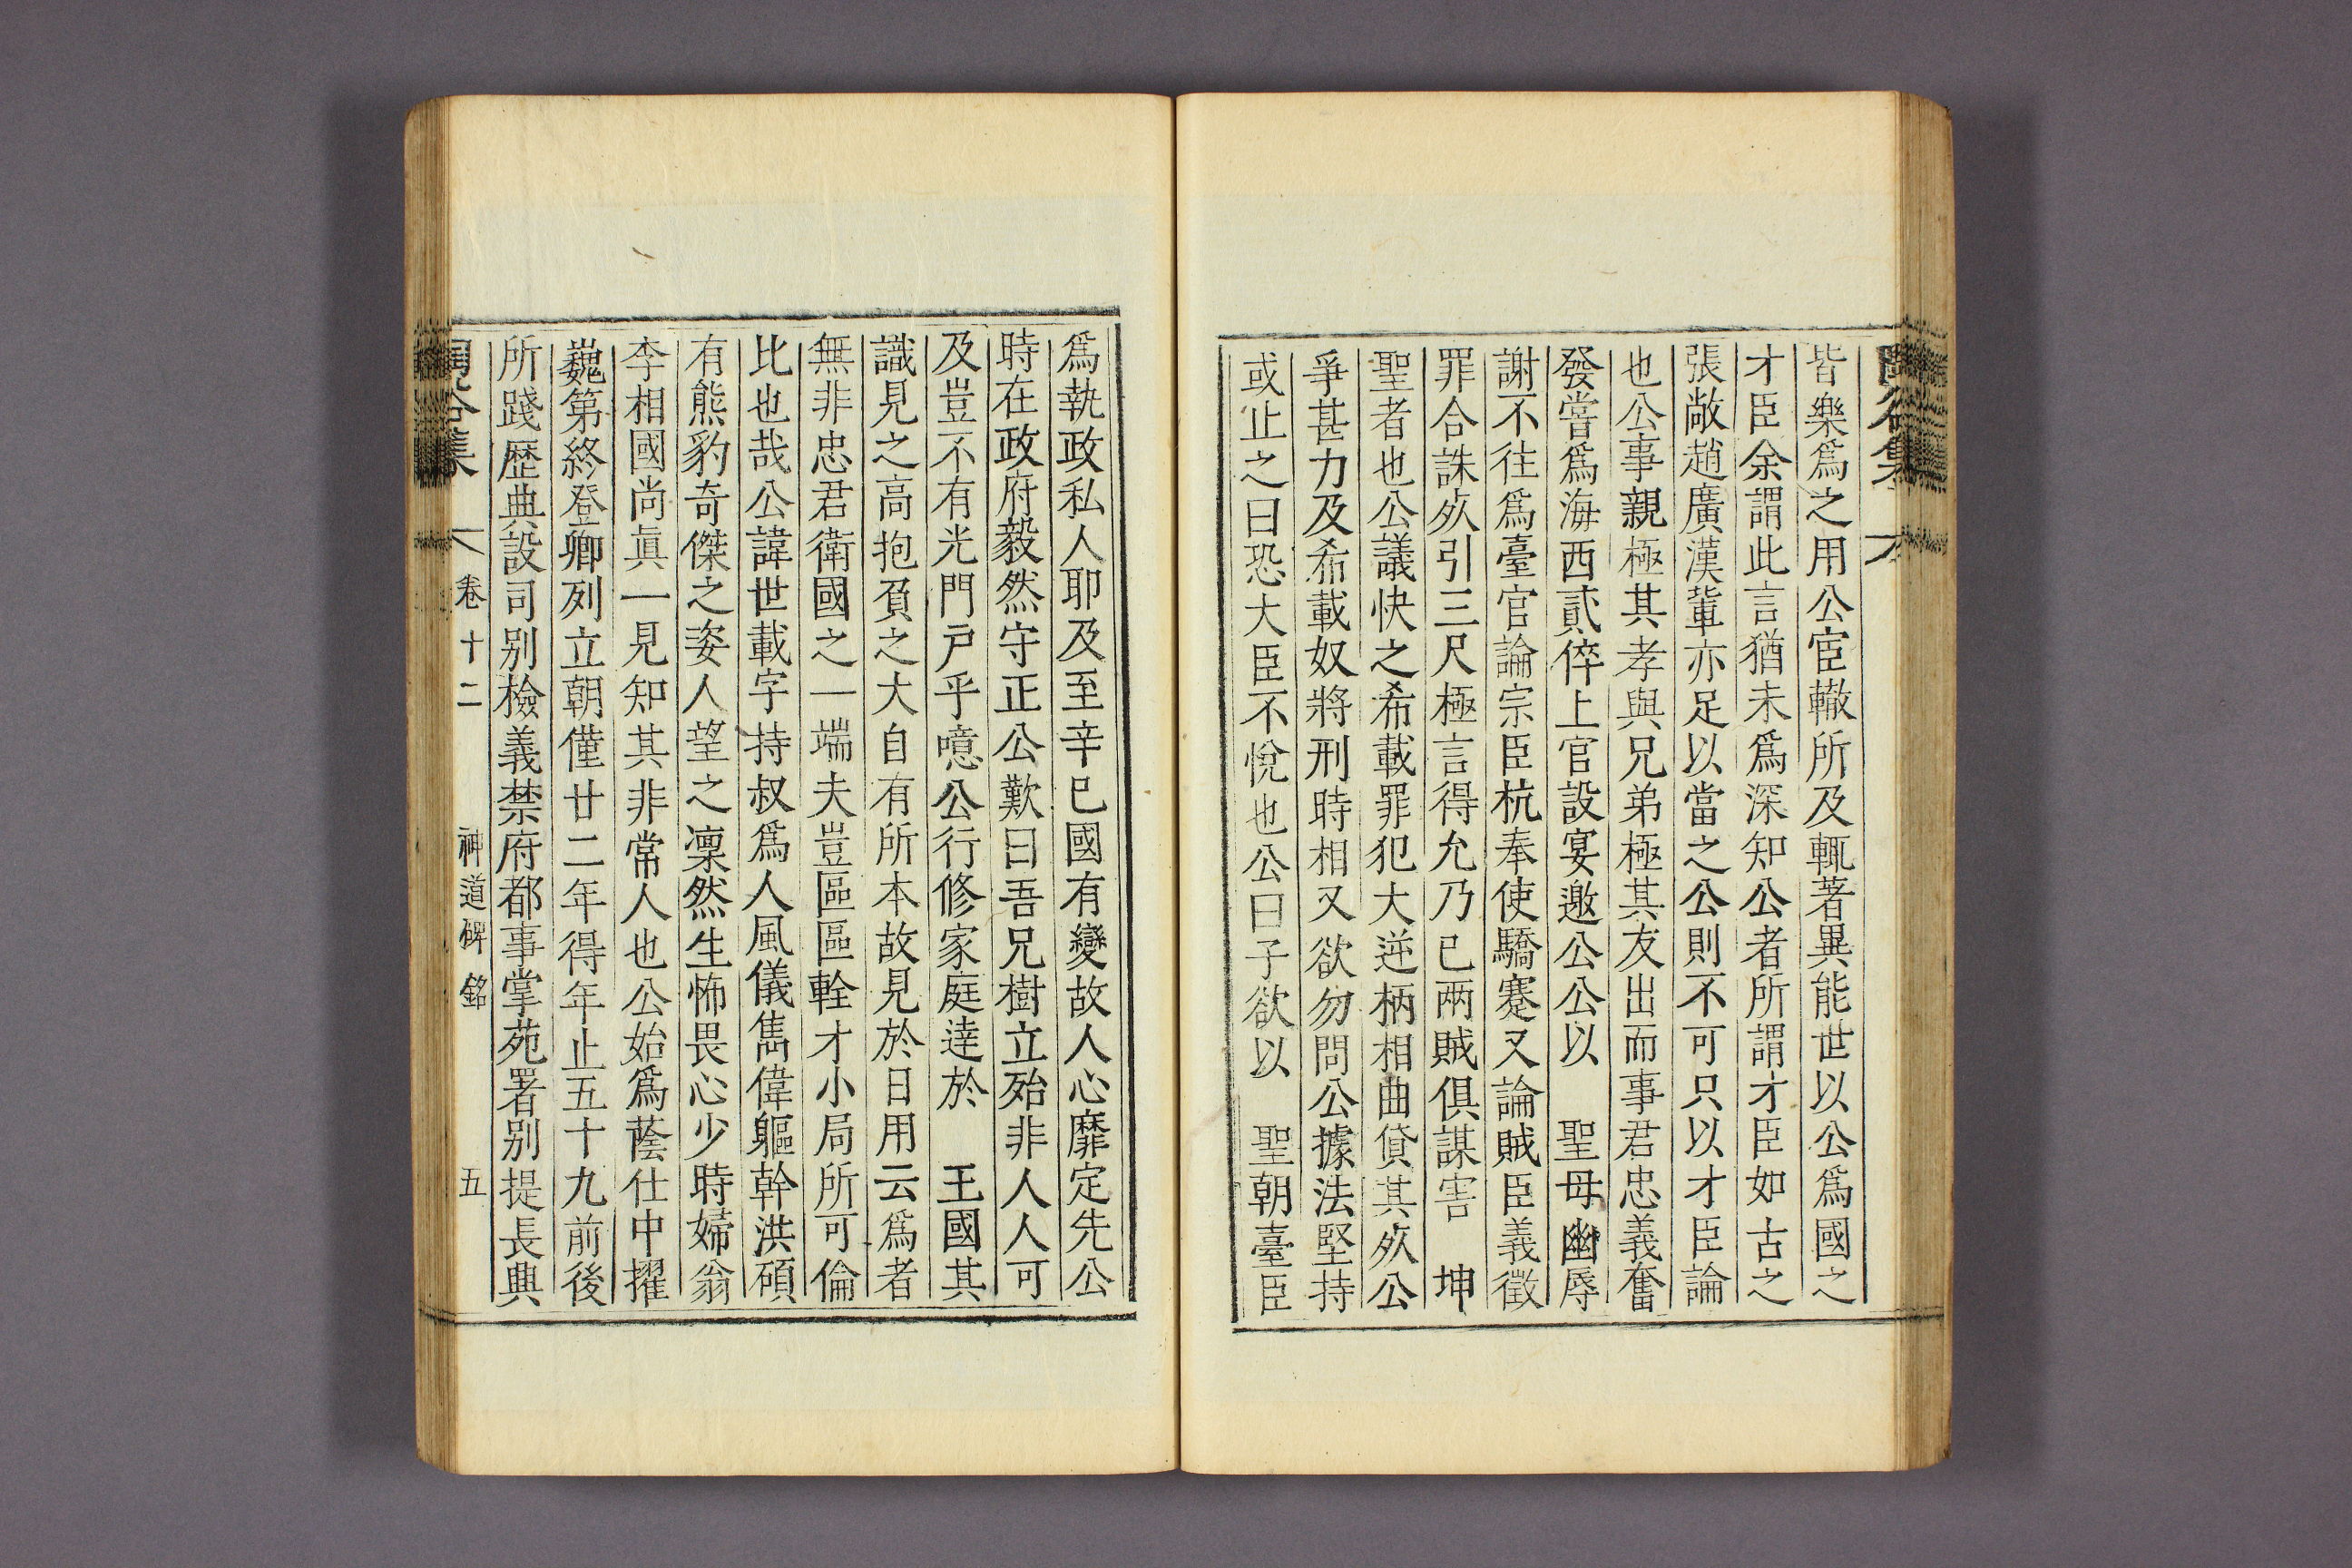 皆樂爲之用公宦轍所及輒著異能世以公爲國之
才臣余謂此言猶未爲深知公者所謂才臣如古之
張敞趙廣漢軰亦足以當之公則不可只以才臣論
也公事親極其孝與兄弟極其友出而事君忠義奮
發嘗爲海西貳倅上官設宴邀公公以 聖母幽辱
謝不往爲臺官論宗臣杭奉使驕蹇又論賊臣義徵
罪合誅㱙引三尺極言得允乃已兩賊俱謀害 坤
聖者也公議快之希載罪犯大逆柄相曲貸其㱙公
爭甚力及希載奴將刑時相又欲勿問公據法堅持
或止之曰恐大臣不悅也公曰子欲以 聖朝臺臣
爲執政私人耶及至辛巳國有變故人心靡定先公
時在政府毅然守正公歎曰吾兄樹立殆非人人可
及豈不有光門戶乎噫公行修家庭達於 王國其
識見之高抱負之大自有所本故見於日用云爲者
無非忠君衛國之一端夫豈區區輇才小局所可倫
比也哉公諱世載字持叔爲人風儀雋偉軀幹洪碩
有熊豹奇傑之姿人望之凛然生怖畏心少時婦翁
李相國尚眞一見知其非常人也公始爲蔭仕中擢
巍第終登卿列立朝僅廿二年得年止五十九前後
所踐歴典設司别檢義禁府都事掌苑署别提長典
集 卷十二 神道碑銘 五